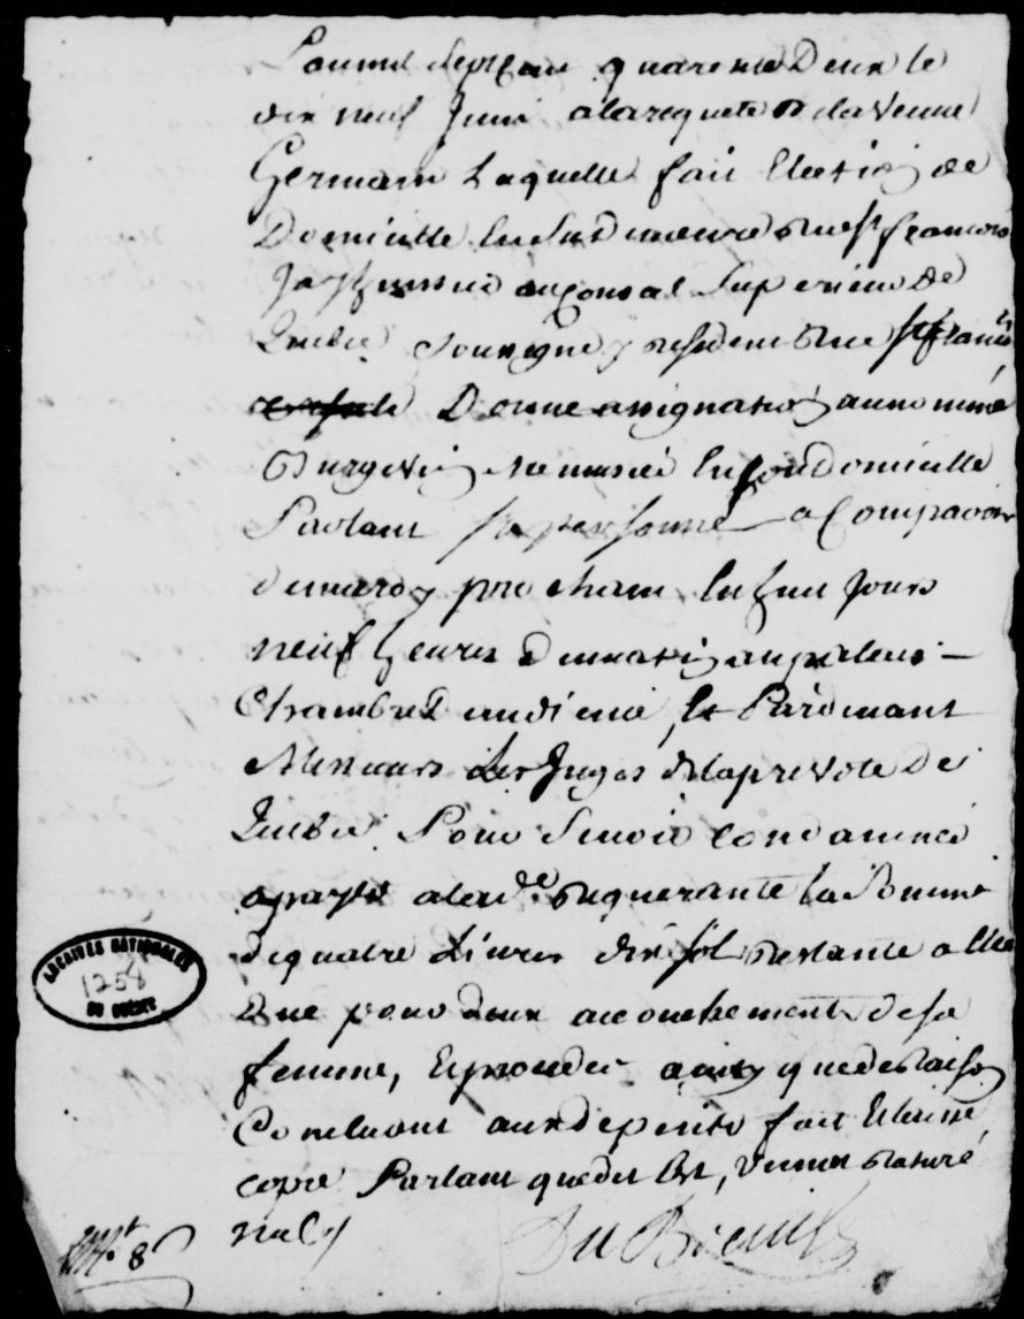 Lan mil sept Cent quarente Deux le
dix neuf Juin a la requete de la Veuve
Germain Laquelle fait Election de
Domicille en sa demeure rue st francois
Jay huissier au Conseil Superieur de
Quebec Soussigné y resident Rue st francois
Donné assignation au nommé
menuisier En son Domicille
Parlant sa personne a Comparoir
de mardy prochain En huit Jours
neuf heures du matin au palais
Chambre d'audience, Et Pardevant
Messieurs Les Juges de la prevoté De
Quebec Pour Se voir condamner
a payer a lad.e Requerante la Somme
de quatre Livres dix sols restante a Elle
Due pour deux accouchements de sa
femme, Repondre ainsy que de raison
Concluant aux depents fait Et laissé
copie Parlant que dit Est,
ARCHIVES NATIONALES
1258
DU QUÉBEC
8